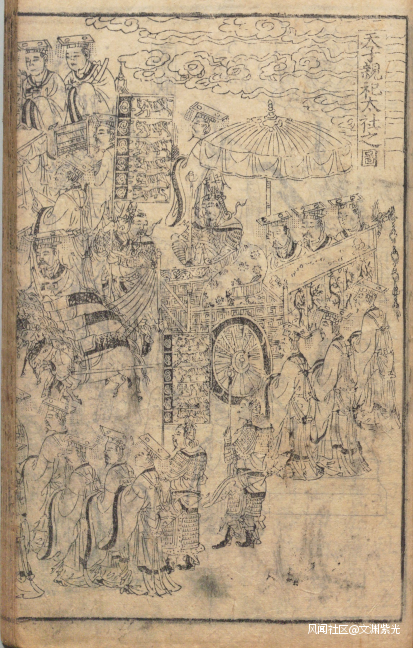 天子親祀太社之圖
风闻社区@文渊紫光